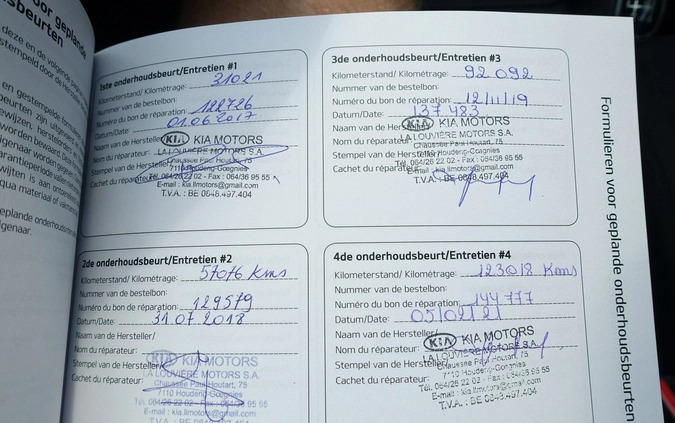 or geplande
dsbeurten
deze en de volgende pagina's
stempeld door de Hers
en gestempelde form
beurten zijn uitgevoe
ewijzen, herstelorders en
worden bewaard. Deze
igenaar worden gegeven
arantieperiode valse
wijten is aan ontoerei
qua materiaal of vakm
geplande onderhoudsbeurt
genaar.
1ste onderhoudsbeurt/Entretien #1
Kilometerstand/ Kilométrage: 31021
Nummer van de bestelbon:
Numéro du bon de réparation: 122726
Datum/Date: 01.06.2017
Naam van de Hersteller/
KIA KIA MOTORS
Nom du réparateur: LA LOUVIERE MOTORS S.A.
Chaussée Paul Houtart, 75
Stempel van de Hersteller/ 7110 Houdeng-Goegnies
Cachet du réparateur: Tél. 064/26 22 02 - Fax : 064/36 95 55
E-mail : kia.llmotors@gmail.com
T.V.A. : BE 0648.497.404
2de onderhoudsbeurt/Entretien #2
Kilometerstand/ Kilométrage: 57076 Kms
Nummer van de bestelbon:
Numéro du bon de réparation: 129579
Datum/Date: 31.07.2018
Naam van de Hersteller/
Nom du réparateur: KIA KIA MOTORS
LA LOUVIERE MOTORS S.A.
Stempel van de Hersteller/ Chaussée Paul Houtart, 75
Cachet du réparateur: 7110 Houdeng-Goegnies
Tél. 064/26 22 02 - Fax : 064/36 95 55
E-mail : kia.llmotors@gmail.com
T.V.A. : BE 0648.497.404
3de onderhoudsbeurt/Entretien #3
Kilometerstand/ Kilométrage: 92 092
Nummer van de bestelbon:
Numéro du bon de réparation: 12/11/19
Datum/Date: 137 483
Naam van de Hersteller/ KIA KIA MOTORS
Nom du réparateur: LA LOUVIERE MOTORS S.A.
Chaussée Paul Houtart, 75
Stempel van de Hersteller/ 7110 Houdeng-Goegnies
Cachet du réparateur: Tél. 064/26 22 02 - Fax : 064/36 95 55
E-mail : kia.llmotors@gmail.com
T.V.A. : BE 0648.497.404
4de onderhoudsbeurt/Entretien #4
Kilometerstand/ Kilométrage: 123018 Kms
Nummer van de bestelbon:
Numéro du bon de réparation: 144777
Datum/Date: 05/02/21
Naam van de Hersteller/
KIA KIA MOTORS
Nom du réparateur: LA LOUVIERE MOTORS S.A.
Chaussée Paul Houtart, 75
Stempel van de Hersteller/ 7110 Houdeng-Goegnies
Cachet du réparateur: Tél. 064/26 22 02 - Fax : 064/36 95 55
E-mail : kia.llmotors@gmail.com
T.V.A. : BE 0648.497.404
Formulieren voor geplande onderhoudsbeurten